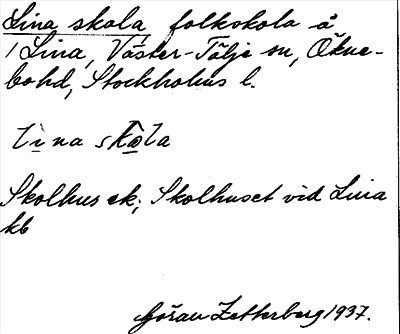 Lina skola, folkskola å
1 Lina, Väster-Tälje sn, Ökne-
bo hd, Stockholms l.
lina skola
Skolhus ek; Skolhuset vid Lina
kb
Göran Zetterberg 1937.